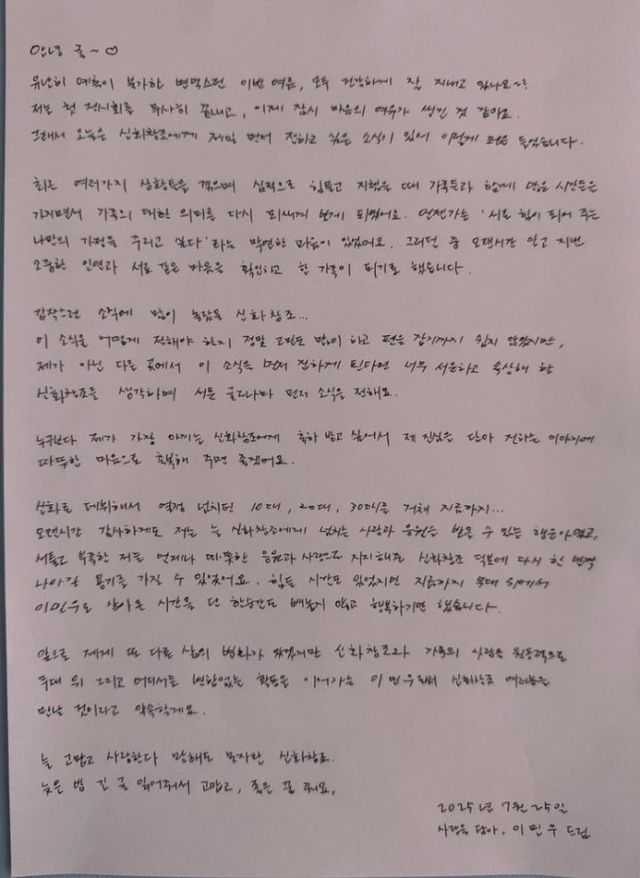 안녕 귤~♡
유난히 예측이 불가한 변덕스런 이번 여름, 모두 건강하게 잘 지내고 있나요~?
저는 첫 전시회를 무사히 끝내고, 이제 잠시 마음의 여유가 생긴 것 같아요.
그래서 오늘은 신화창조에게 제일 먼저 전하고 싶은 소식이 있어 이렇게 펜을 들었습니다.
최근 여러가지 상황들을 겪으며 심적으로 힘들고 지쳤을 때 가족들과 함께 많은 시간들은
가지면서 가족의 대한 의미를 다시 되새기게 되었어요. 언젠가는 '서로 힘이 되어 주는
나만의 가정을 꾸리고 싶다'라는 막연한 마음이 있었어요. 그러던 중 오랜시간 알고 지낸
소중한 인연과 서로 같은 마음을 확인하고 한 가족이 되기로 했습니다.
갑작스런 소식에 많이 놀랐을 신화창조...
이 소식을 어떻게 전해야 할지 정말 고민도 많이 하고 펜을 잡기까지 쉽지 않았지만,
제가 아닌 다른 곳에서 이 소식을 먼저 접하게 된다면 너무 서운하고 속상해 할
신화창조를 생각하며 서툰 글로나마 먼저 소식을 전해요.
누구보다 제가 가장 아끼는 신화창조에게 축하 받고 싶어서 제 진심을 담아 전하는 이야기에
따뜻한 마음으로 축복해 주면 좋겠어요.
신화로 데뷔해서 열정 넘치던 10대, 20대, 30대를 거쳐 지금까지...
오랜시간 감사하게도 저는 늘 신화창조에게 넘치는 사랑과 응원을 받을 수 있는 행운아였고,
서툴고 부족한 저를 언제나 따뜻한 응원과 사랑으로 지지해준 신화창조 덕분에 다시 한 번 더
나아갈 용기를 가질 수 있었어요. 힘든 시간도 있었지만 지금까지 무대 위에서
이민우로 살아온 시간을 단 한순간도 빼놓지 않고 행복하기만 했습니다.
앞으로 제게 또 다른 삶의 변화가 있겠지만 신화창조와 가족의 사랑을 원동력으로
무대 위 그리고 어디서든 변함없는 활동을 이어가는 이민우로서 신화창조 여러분을
만날 것이라고 약속할게요.
늘 고맙고 사랑한다 말해도 모자란 신화창조.
늦은 밤 긴 글 읽어줘서 고맙고, 좋은 꿈 꿔요.
2025년 7월 25일
사랑을 담아, 이민우 드림